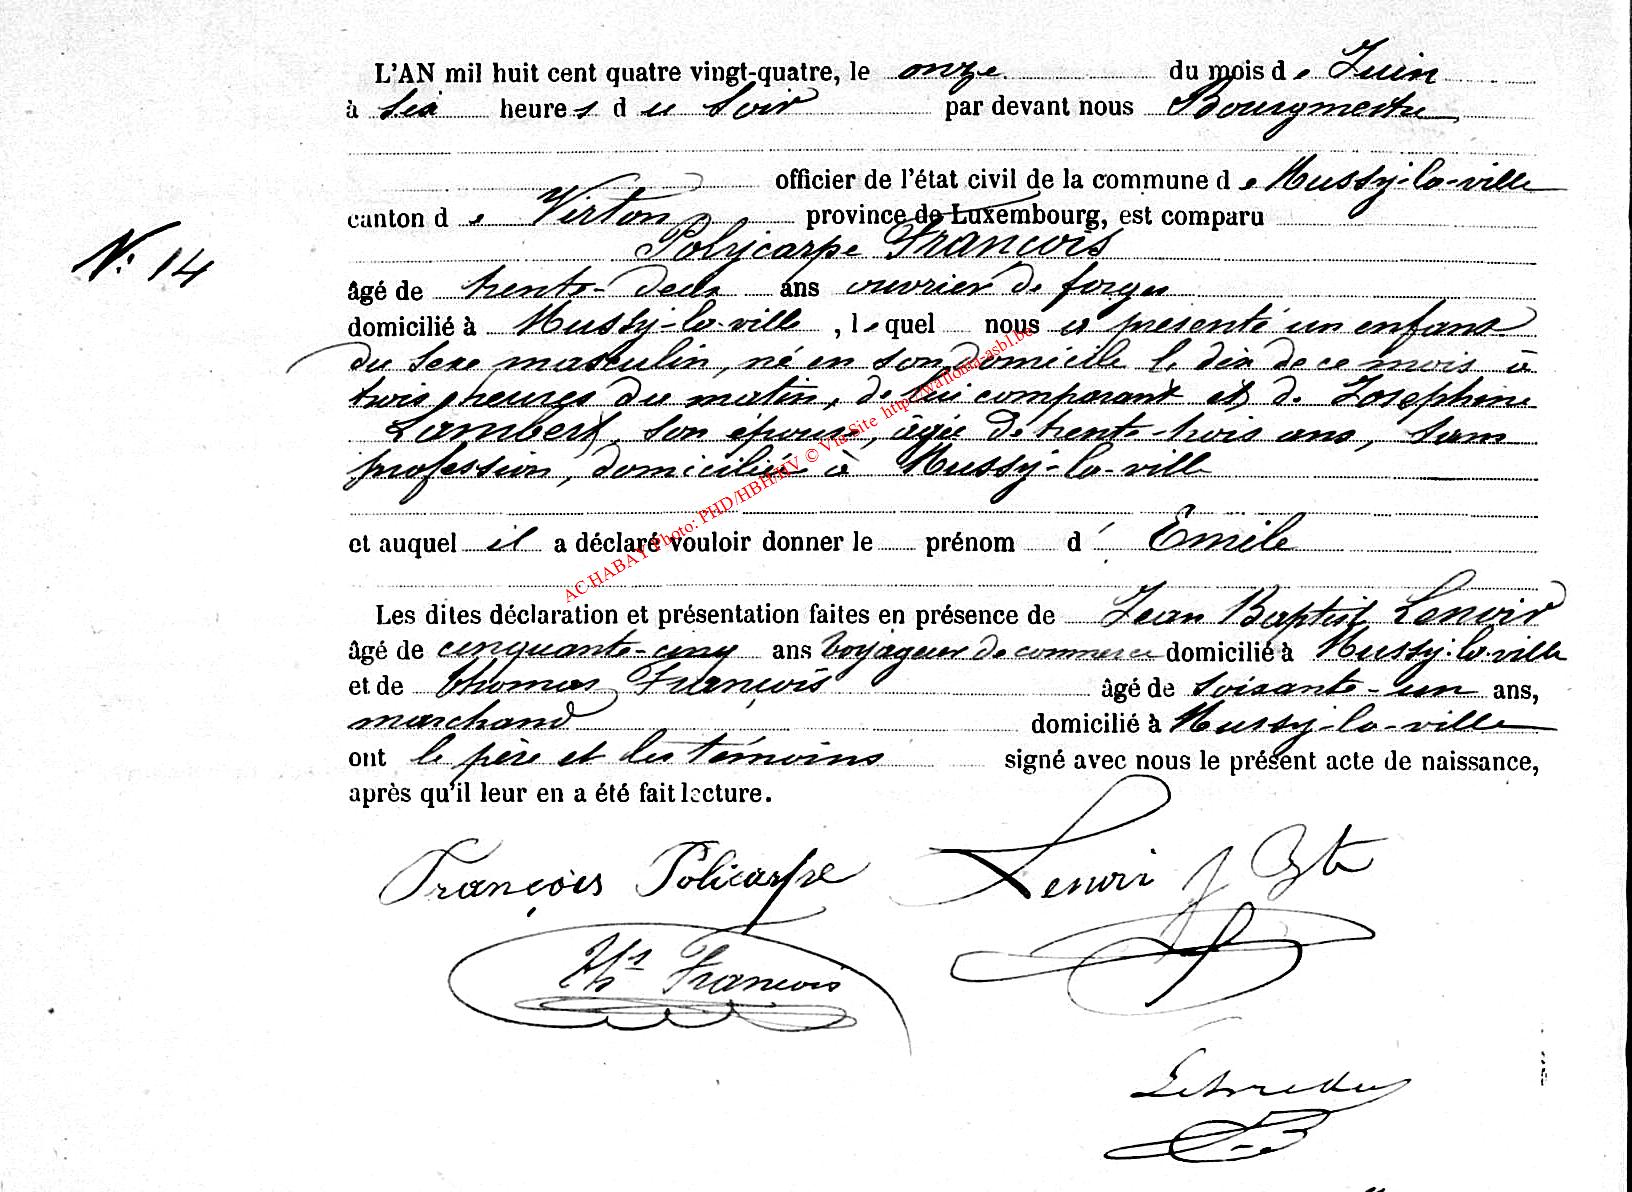 L'AN mil huit cent quatre vingt-quatre, le onze du mois de Juin
à six heures du soir par devant nous Bourgmestre
officier de l'état civil de la commune de Mussy-la-ville
canton de Virton province de Luxembourg, est comparu
N: 14
Polycarpe François
âgé de trente-deux ans ouvrier de forges
domicilié à Mussy-la-ville, lequel nous a présenté un enfant
du sexe masculin, né en son domicile le dix de ce mois à
trois heures du matin, de lui comparant et de Josephine
Lambert, son épouse, âgée de trente-trois ans, sans
profession, domiciliée à Mussy-la-ville
et auquel il a déclaré vouloir donner le prénom d'Emile
Les dites déclaration et présentation faites en présence de Jean Baptist Lenoir
âgé de cinquante-cinq ans voyageur de commerce domicilié à Mussy-la-ville
et de thomas François âgé de soixante-un ans,
marchand domicilié à Mussy-la-ville
ont le père et les témoins signé avec nous le présent acte de naissance,
après qu'il leur en a été fait lecture.
François Policarpe Lenoir J Bte
Ths François
AC HABAY Photo: PHD/HBH/HV © Via Site http://wallonia-asbl.be